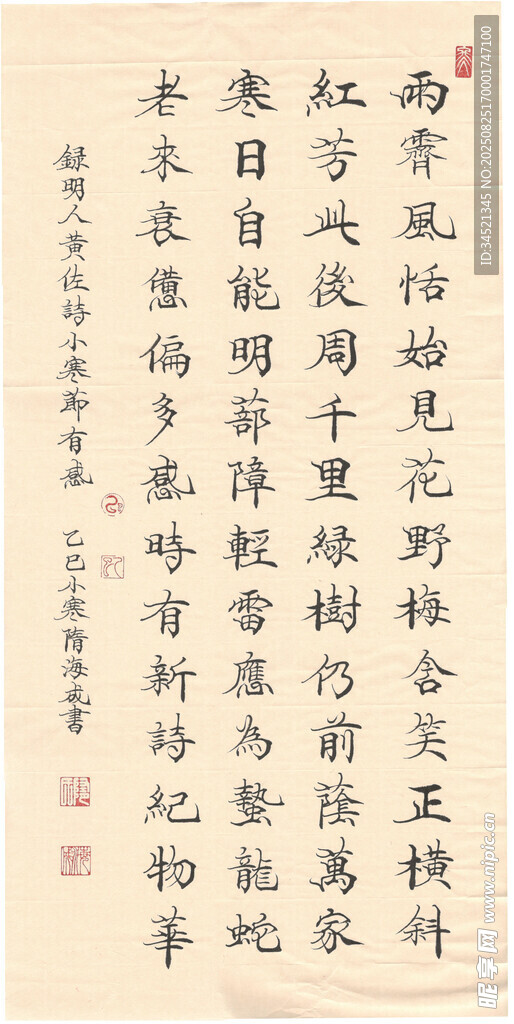 雨霽風恬始見花野梅含笑正橫斜
紅芳此後周千里緑樹仍前蔭萬家
寒日自能明蔀障輕雷應為蟄龍蛇
老來衰憊偏多感時有新詩紀物華
録明人黃佐詩小寒節有感 乙巳小寒隋海成書
ID:34521345 NO:20250825170001747100
昵享网 www.nipic.cn